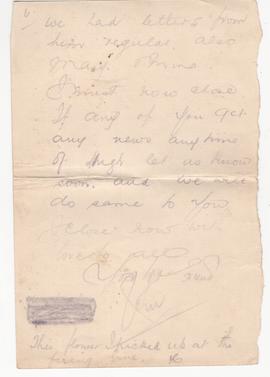 we had letters from
him regular. also
May.
I must now close
If any of you get
any news anytime
of Hugh let us know
soon. and we will
do same to you
I close now with
love to all
Yr
This flower I picked up at the
firing line.